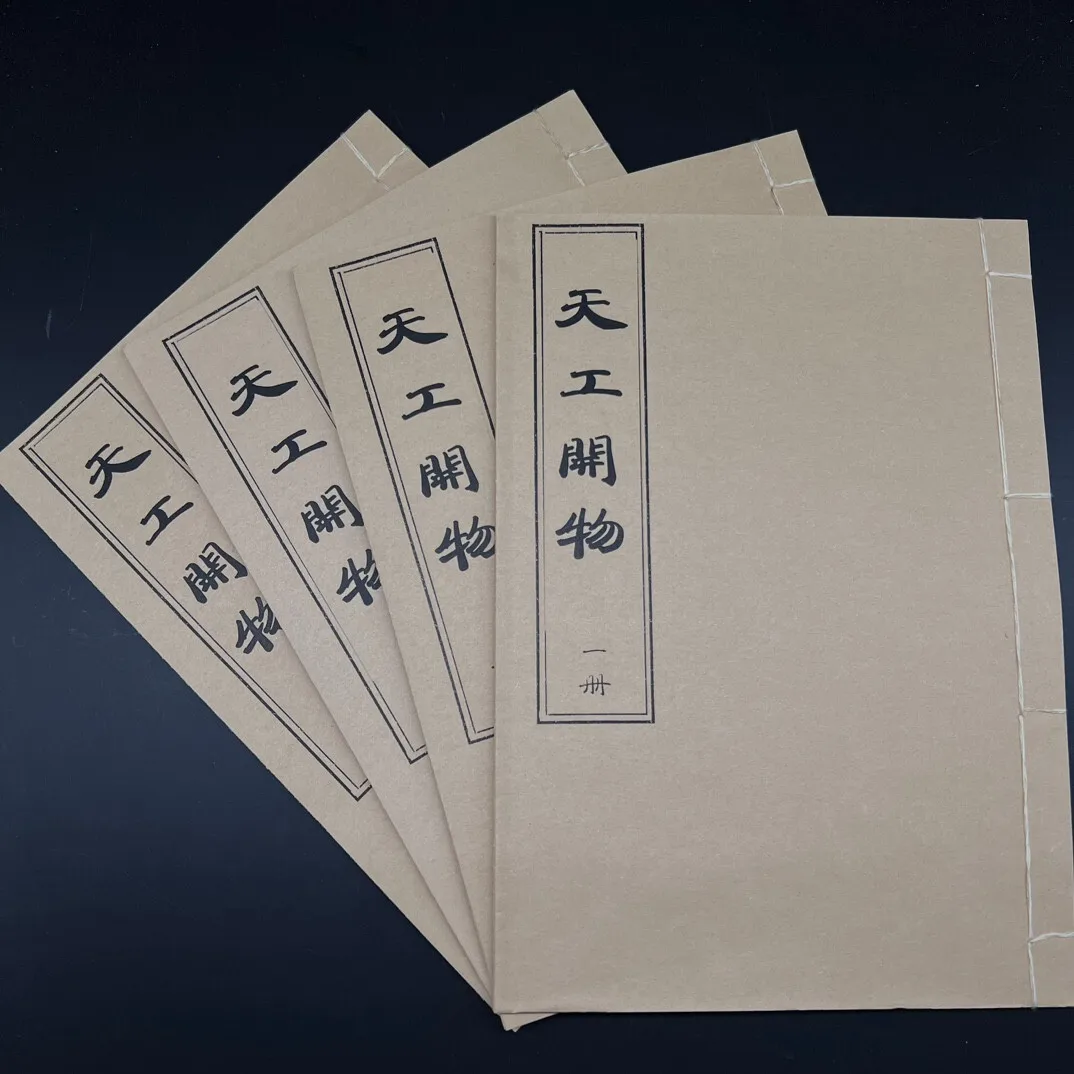 天工開物
一册
天工開物
天工開物
天工開物